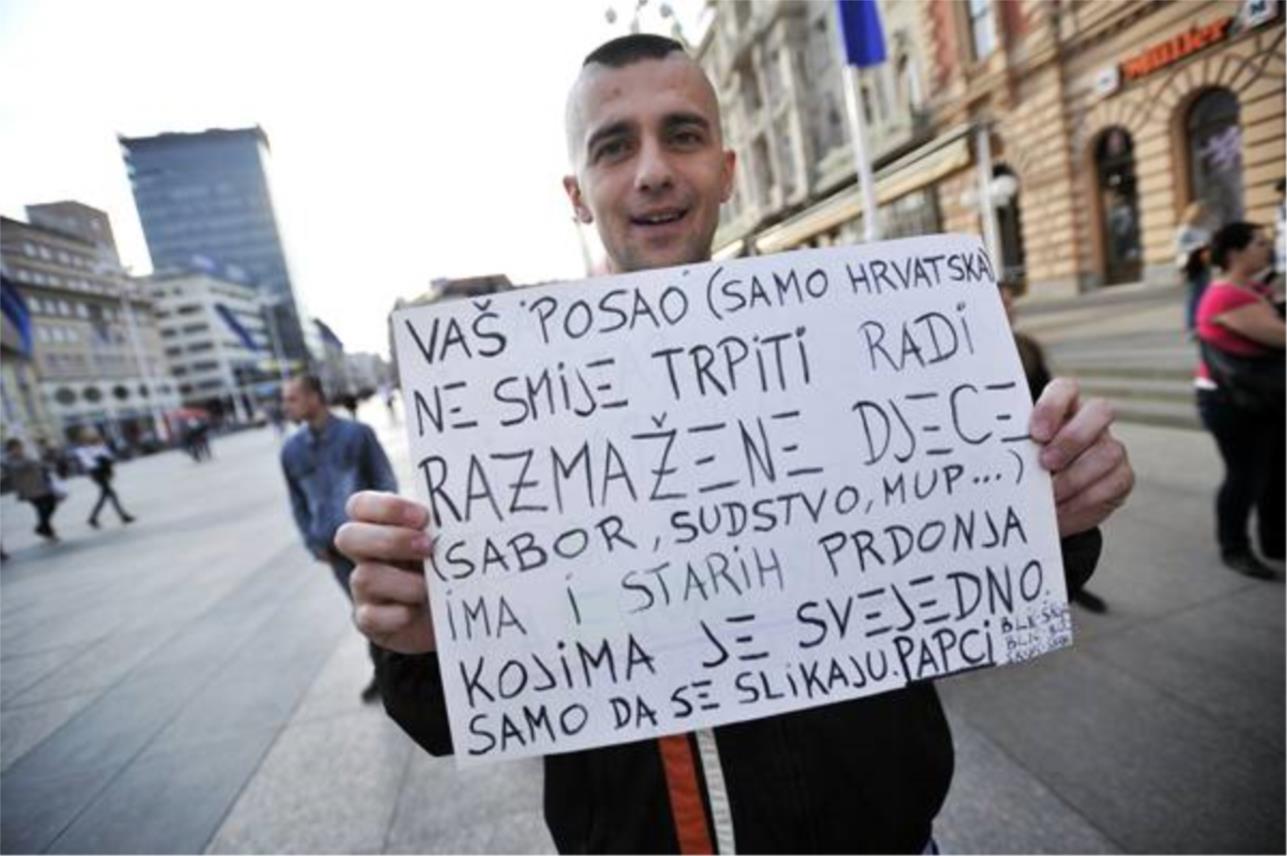 Müller
VAŠ POSAO (SAMO HRVATSKA)
NE SMIJE TRPITI RADI
RAZMAŽENE DJECE
(SABOR, SUDSTVO, MUP...)
IMA I STARIH PRDONJA
KOJIMA JE SVEJEDNO.
SAMO DA SE SLIKAJU. PAPCI